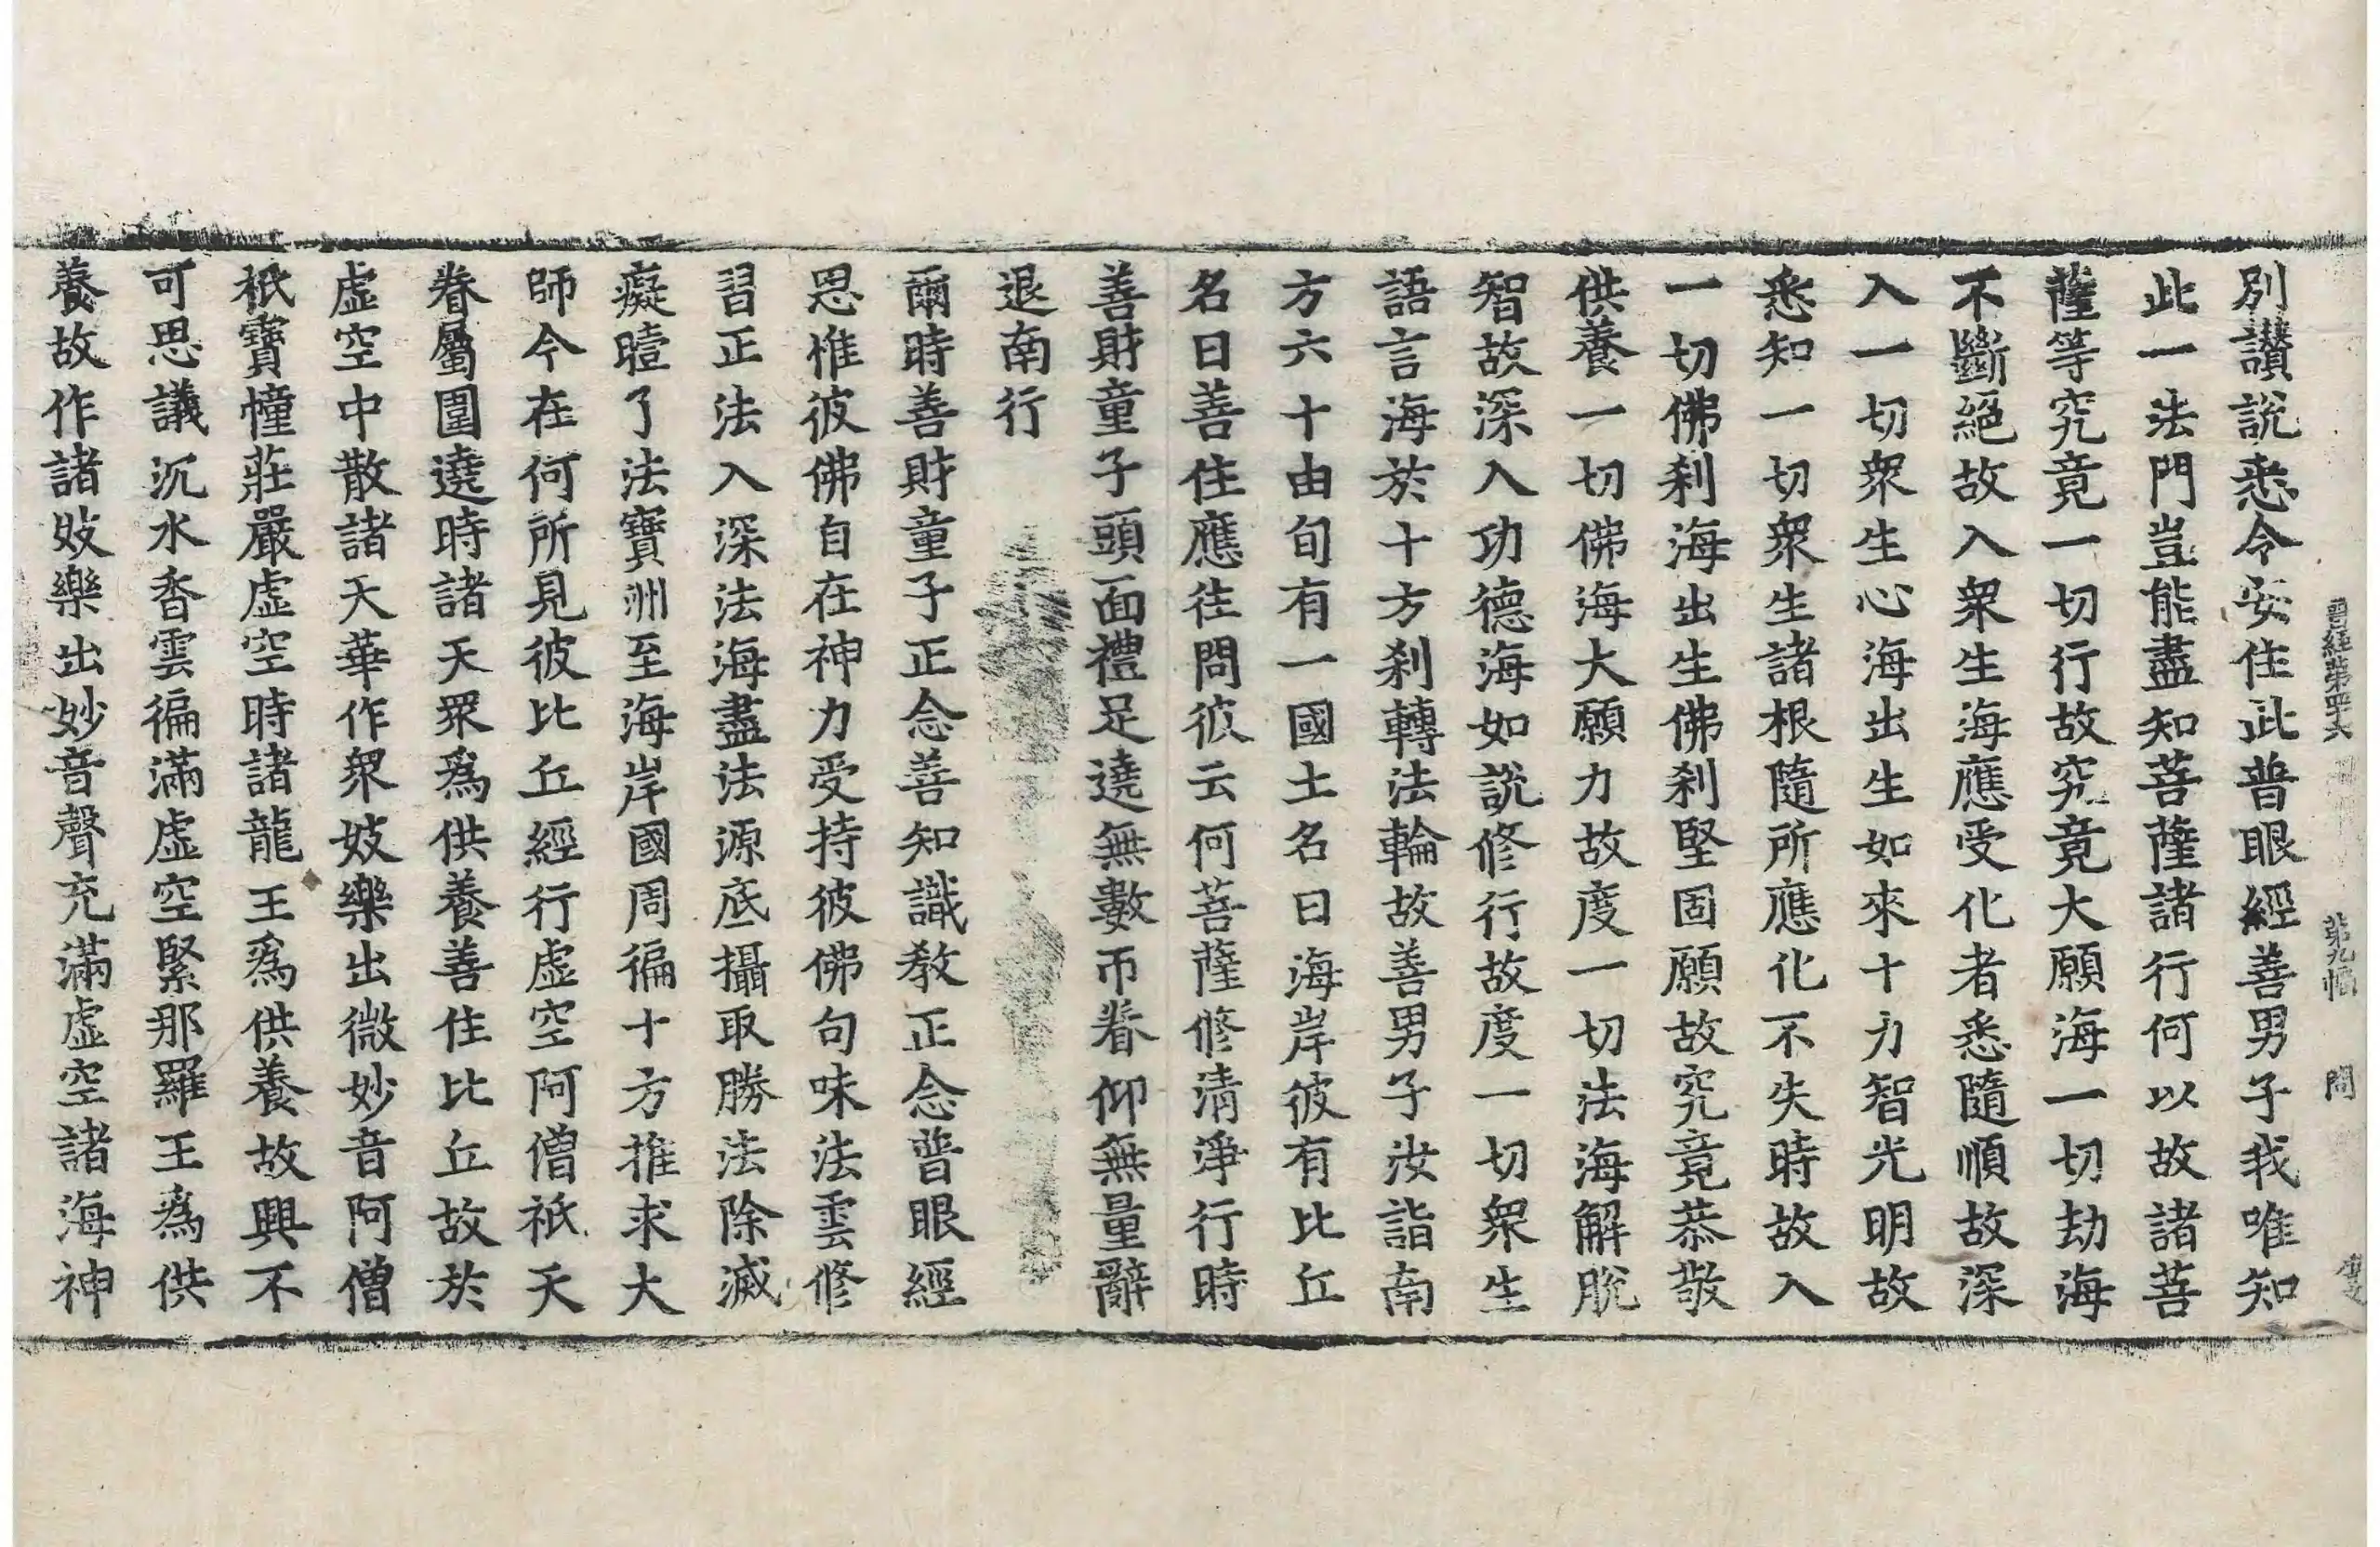 晉經第四六 第九幅 問
別讚說悉令安住此普眼經善男子我唯知
此一法門豈能盡知菩薩諸行何以故諸菩
薩等究竟一切行故究竟大願海一切劫海
不斷絕故入衆生海應受化者悉隨順故深
入一切衆生心海出生如來十力智光明故
悉知一切衆生諸根隨所應化不失時故入
一切佛刹海出生佛刹堅固願故究竟恭敬
供養一切佛海大願力故度一切法海解脫
智故深入功德海如說修行故度一切衆生
語言海於十方刹轉法輪故善男子汝詣南
方六十由旬有一國土名曰海岸彼有比丘
名曰善住應往問彼云何菩薩修清淨行時
善財童子頭面禮足遶無數帀眷仰無量辭
退南行
爾時善財童子正念善知識教正念普眼經
思惟彼佛自在神力受持彼佛句味法雲修
習正法入深法海盡法源底攝取勝法除滅
癡曀了法寶洲至海岸國周徧十方推求大
師今在何所見彼比丘經行虛空阿僧祇天
眷屬圍遶時諸天衆爲供養善住比丘故於
虛空中散諸天華作衆妓樂出微妙音阿僧
祇寶幢莊嚴虛空時諸龍王爲供養故興不
可思議沉水香雲徧滿虛空緊那羅王爲供
養故作諸妓樂出妙音聲充滿虛空諸海神